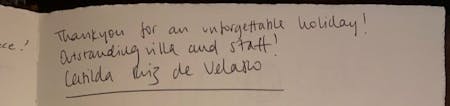 Thankyou for an unforgettable holiday!
Outstanding villa and staff!
Ruiz de Velasco